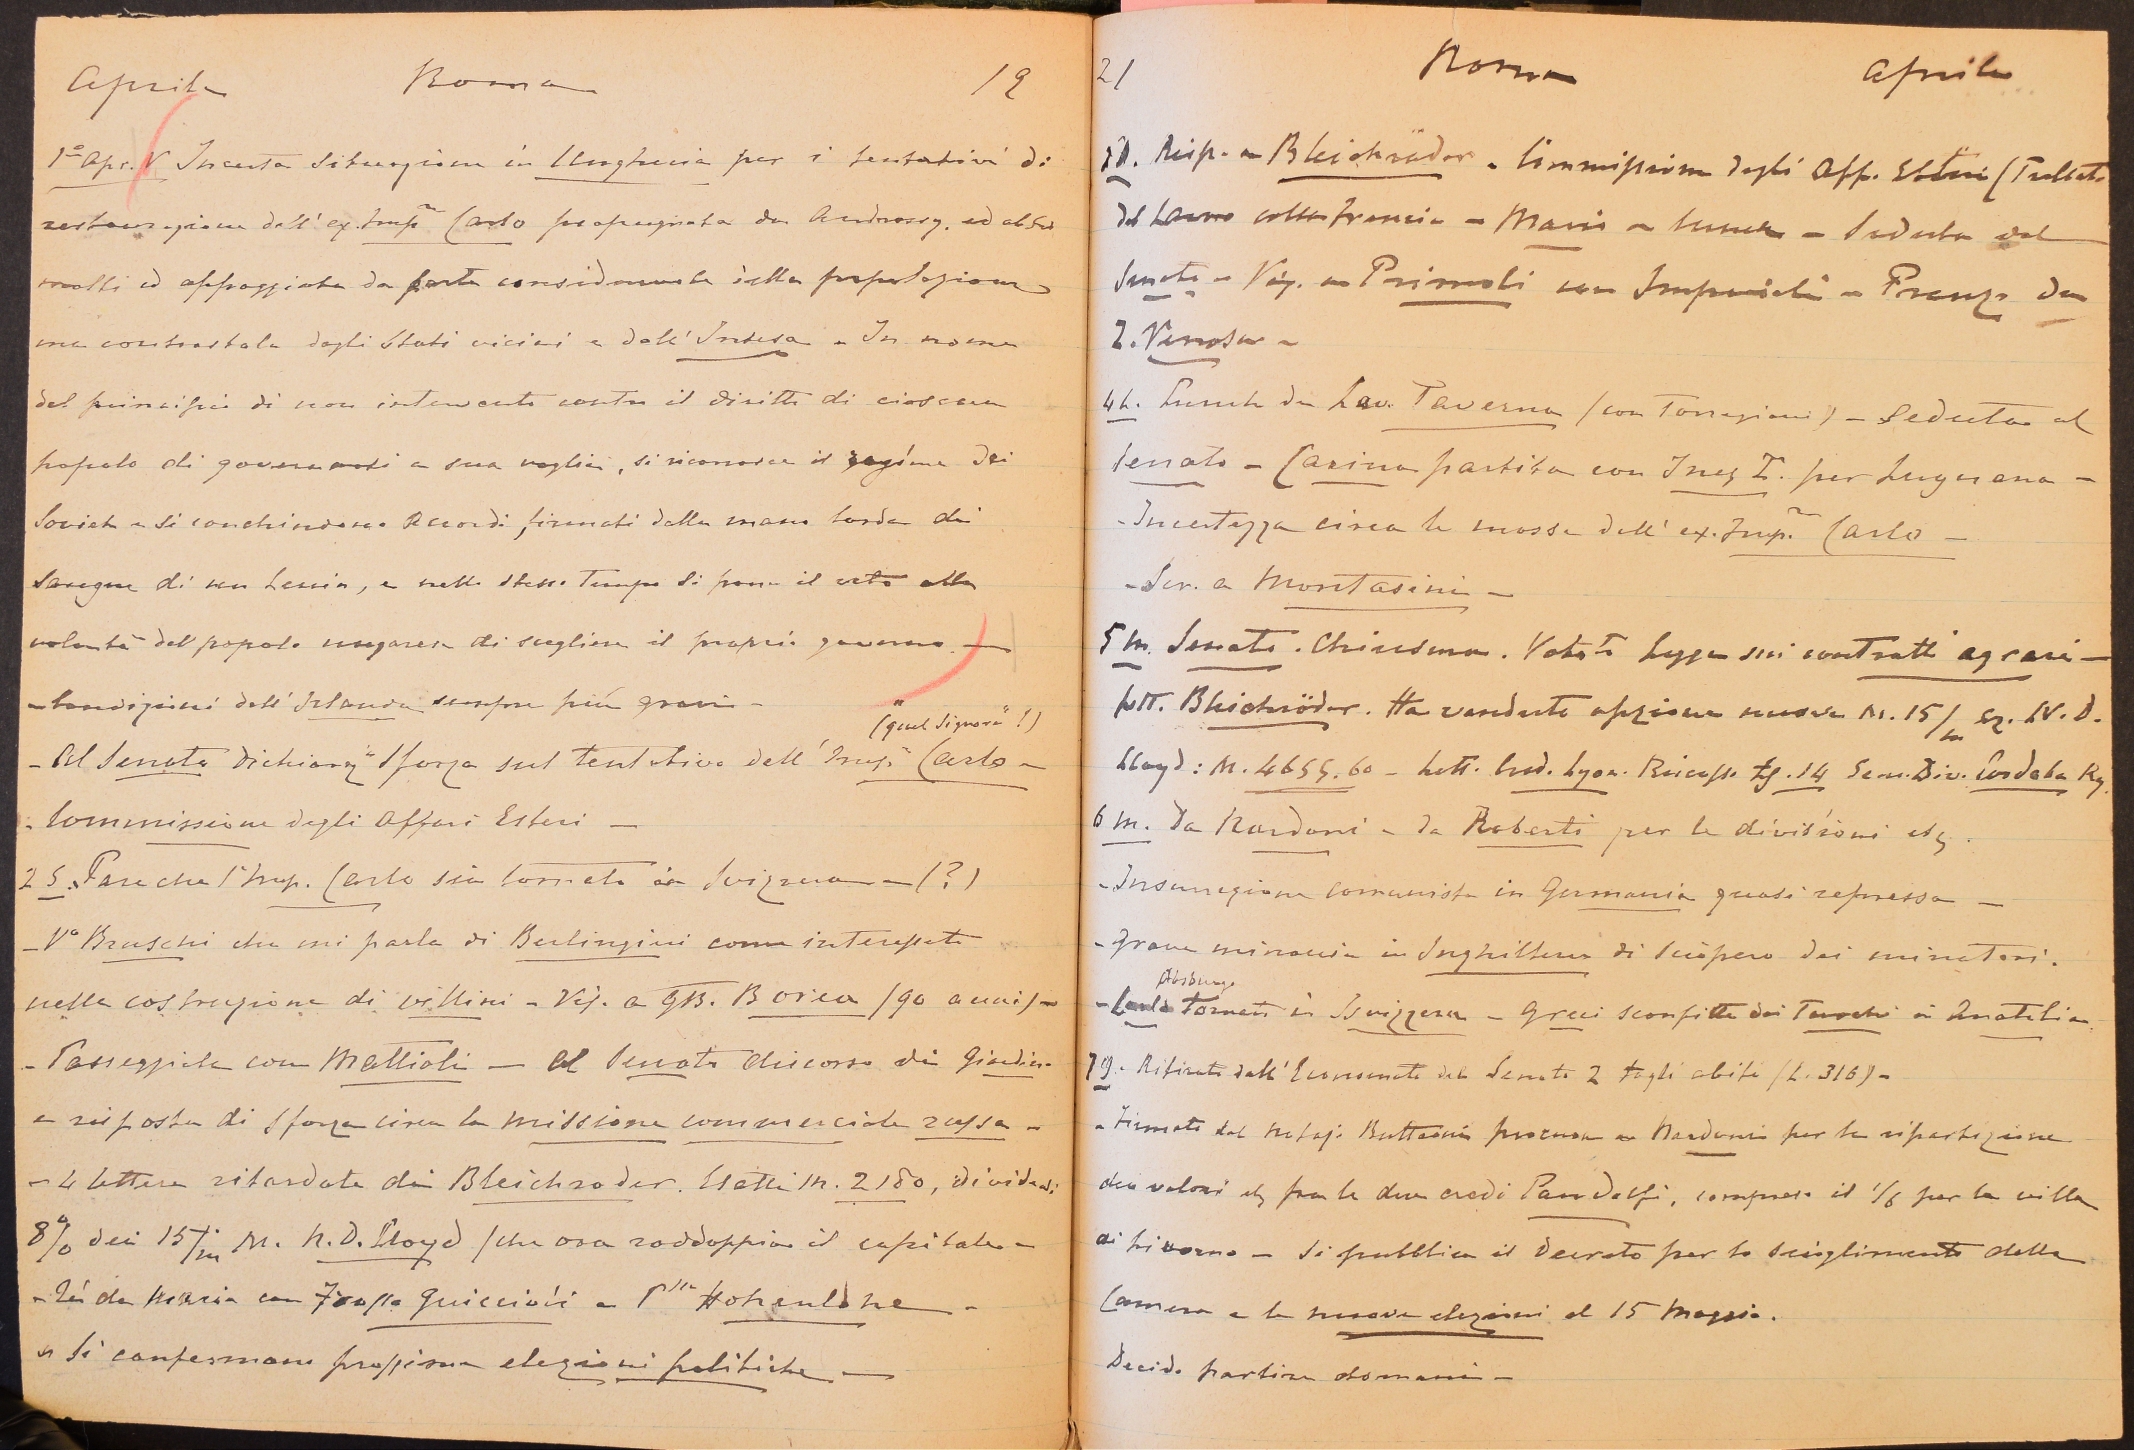 Aprile Roma 19
1° Apr. V Incerta situazione in Ungheria per i tentativi di
restaurazione dell'ex. Imp.re Carlo propugnata da Andrassy, ed altri
molti ed appoggiata da parte considerevole della popolazione
ma contrastata dagli Stati vicini e dall'Intesa - In nome
del principio di non intervento contro il diritto di ciascun
popolo di governarsi a sua voglia, si riconosce il regime dei
Soviet e si conchiudono accordi, firmati dalla mano lorda di
sangue di un Lenin, e nello stesso tempo si pone il veto alla
volontà del popolo ungarese di scegliere il proprio governo -
- Condizioni dell'Irlanda sempre più gravi -
("quel Signore"!)
- Al Senato dichiaraz.ni Sforza sul tentativo dell'Imp.re Carlo -
- Commissione degli Affari Esteri -
2 S. Pare che l'Imp. Carlo sia tornato in Svizzera - (?)
- V° Bruschi che mi parla di Berlingini come interessato
nella costruzione di villini - Vis. a GB. Borea (90 anni) -
- Passeggiata con Mattioli - Al Senato discorso di
e risposta di Sforza circa la missione commerciale russa -
- 4 lettere ritardate di Bleichroder. Esatti M. 2180, dividendi
8% dei 15/m M. N. D. Lloyd (che ora raddoppia il capitale -
- Tè da Maria con Guiccioli e P.ssa Hohenlohe -
- Si confermano prossime elezioni politiche -
21 Roma Aprile
3 D. Risp. a Bleichröder - Commissione degli Aff. Esteri (Trattato
del Lavoro colla Francia - Mario a lunch - Seduta del
Senato - Vis. a Primoli con Imperiali - Pranzo da
Z. Venosa -
4 L. Lunch da Lav. Taverna (con Torrigiani) - Seduta al
Senato - Carina partita con Inez T. per Lugnano -
- Incertezza circa le mosse dell'ex. Imp.re Carlo -
- Scr. a Montasini -
5 M. Senato. Chiusura. Votata legge sui contratti agrari -
Lett. Bleichröder. Ha venduto opzione nuove M. 15/m az. N. D.
Lloyd: M. 4655.60 - Lett. Cred. Lyon. 14 Sem. Div. Cordoba Ry.
6 M. Da Nardoni - da Roberti per le divisioni etc.
- Insurrezione comunista in Germania quasi repressa -
- Grave minaccia in Inghilterra di sciopero dei minatori.
Absburgo
- Carlo tornato in Svizzera - Greci sconfitti dai Turchi in Anatolia -
7 G. - Ritirato dall'Economato del Senato 2 tagli abiti (L. 316) -
- Firmato dal notajo Buttaoni procura a Nardoni per la ripartizione
dei valori etc fra le due eredi Pandolfi, compreso il 1/6 per la villa
di Livorno - Si pubblica il Decreto per lo scioglimento della
Camera e le nuove elezioni al 15 Maggio.
Decido partire domani -